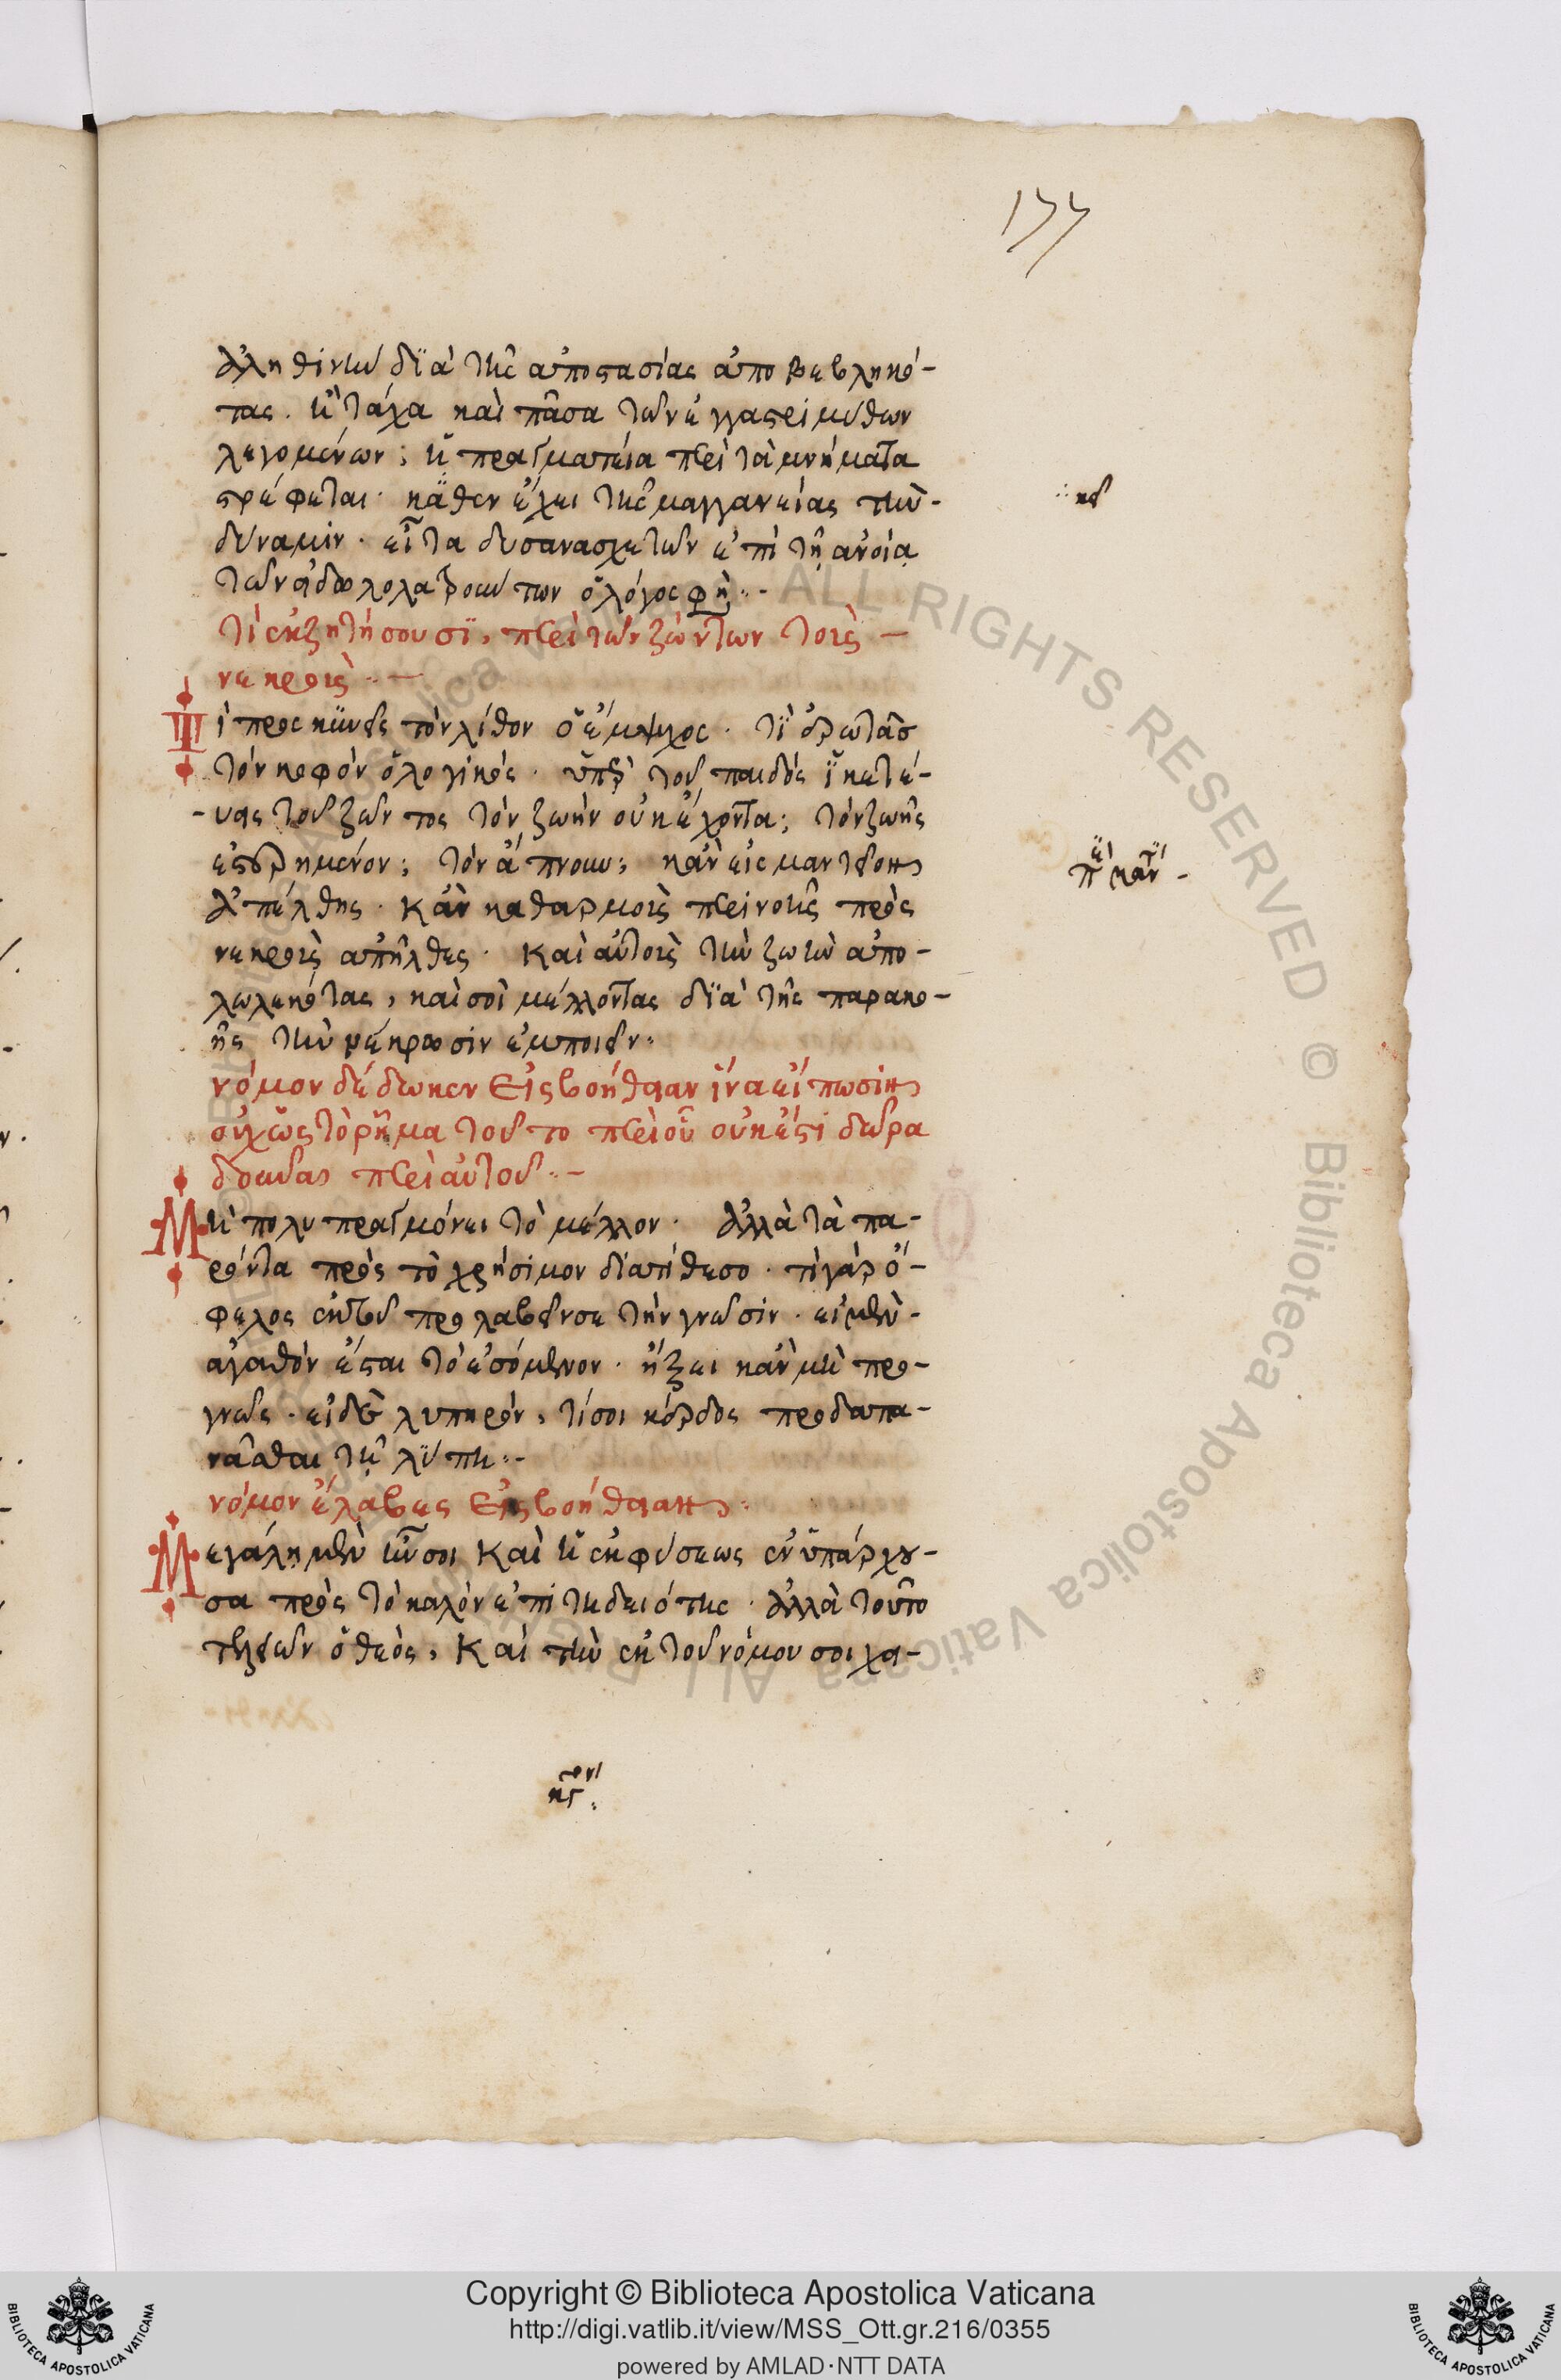 177
ἀληθινὴν δϊὰ τῆς ἀποστασίας ἀποβεβληκό-
τας. ἢ τάχα καὶ πᾶσα τῶν ἐγγαστριμύθων
λεγομένων; ἡ πραγματεία περὶ τὰ μνήματα
στρέφεται. κᾄθεν ἔχει τῆς μαγγανείας τὴν-
δύναμιν. εἶτα δυσανασχετῶν ἐπὶ τῇ ἀνοίᾳ
τῶν εἰδωλολατρούντων ὁ λόγος φησὶ··-
τί ἐκζητήσουσϊ, περὶ τῶν ζώντων τοὺς -
νεκροὺς ··-
Τί προσκϋνεῖς τὸν λίθον ὁ ἔμψυχος. τΐ ἐρωτᾶς
τὸν κοφὸν ὁ λογικός. ὑπὲρ τοῦ παιδὸς ἱκετεύ-
-εις τοῦ ζῶντος τὸν ζωὴν οὐκ ἔχοντα; τὸν ζωῆς
ἐστερημένον; τὸν ἄπνουν; κἂν εἰς μαντεῖον
ἀπέλθῃς. Κἂν καθαρμοὺς περινοῇς πρὸς
νεκροὺς ἀπῆλθες. Καὶ αὐτοὺς τὴν ζωὴν ἀπο-
λωλεκότας, καὶ σοὶ μέλλοντας δϊὰ τῆς παρακο-
ῆς τὴν νέκρωσιν ἐμποιεῖν·
νόμον δέδωκεν εἰς βοήθειαν ἵνα εἴπωσιν
οὐχ ὡς τὸ ῥῆμα τοῦτο περὶ οὗ οὐκ ἔστι δῶρα
δοῦναι περὶ αὐτοῦ··-
Μὴ πολυπραγμόνει τὸ μέλλον. Ἀλλὰ τὰ πα-
ρόντα πρὸς τὸ χρήσιμον διατίθεσο. τί γὰρ ὄ-
φελος ἐκ τοῦ προλαβεῖν σε τὴν γνῶσιν. εἰ μὲν-
ἀγαθὸν ἔσται τὸ ἐσόμενον. ἥξει κἂν μὴ προ-
γνῷς. εἰ δὲ λυπηρόν, τί σοι κέρδος προδαπα-
νᾶσθαι τῇ λύπῃ··-
νόμον ἔλαβες εἰς βοήθειαν·
Μεγάλη μὲν ἦν σοι Καὶ ἡ ἐκ φύσεως ἐνϋπάρχου-
σα πρὸς τὸ καλὸν ἐπιτηδειότης. Ἀλλὰ τοῦτο
ὁ θεὸς, Καὶ τὴν ἐκ τοῦ νόμου σοι χα-
Copyright © Biblioteca Apostolica Vaticana
http://digi.vatlib.it/view/MSS_Ott.gr.216/0355
powered by AMLAD·NTT DATA
BIBLIOTECA APOSTOLICA VATICANA
BIBLIOTECA APOSTOLICA VATICANA
ALL RIGHTS RESERVED © Biblioteca Apostolica Vaticana